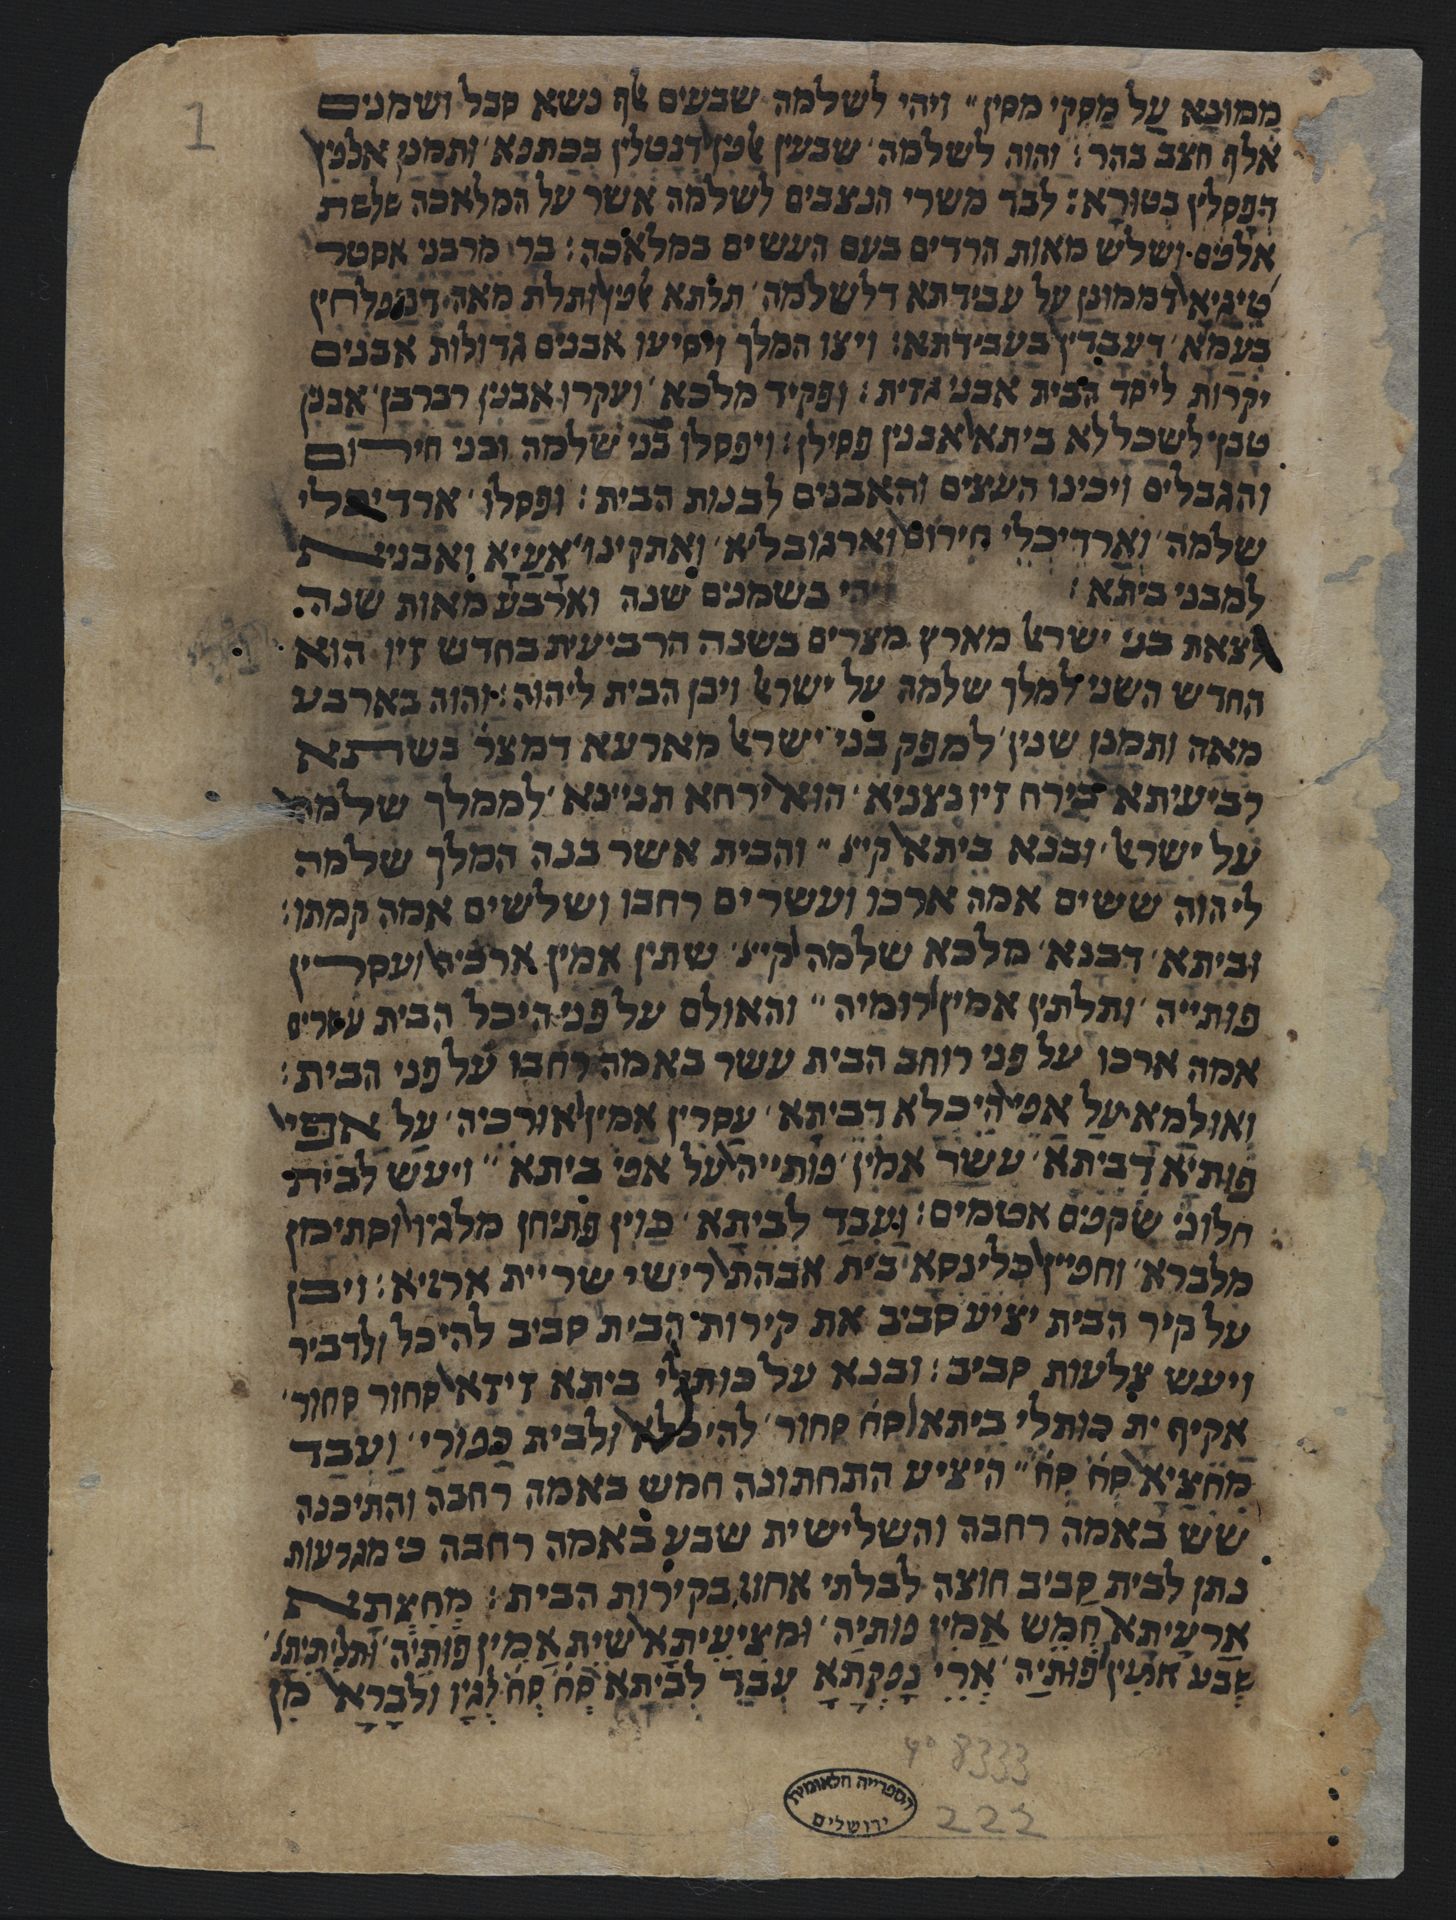 1
ממונא על מסקי מסין ״ ויהי לשלמה שבעים אלף נשא סבל ושמנים
אלף חצב בהר : והוה לשלמה ׳ שבעין אלפין דנטלין בכתפא ׳ ותמנן אלפין
דפסלין בטורא : לבד משרי הנצבים לשלמה אשר על המלאכה שלשת
אלפים ושלש מאות הרדים בעם העשים במלאכה : בר מרבני אסטר
טיגיא דממונן על עבידתא דלשלמה ׳ תלתא אלפין ותלת מאה
בעמא ׳ דעבדין בעבידתא : ויצו המלך ויסיעו אבנים גדולות אבנים
יקרות ליסד הבית אבני גזית : ופקיד מלכא ׳ ועקרו אבנין רברבן ׳ אבנין
טבן לשכללא ביתא אבנין פסילן : ויפסלו בני שלמה ובני חירום
והגבלים ויכינו העצים והאבנים לבנות הבית : ופסלו ׳ ארדיכלי
שלמה ׳ וארדיכלי חירום וארגובליא ׳ ואתקינו אעיא ואבניא
למבני ביתא : ויהי בשמנים שנה וארבע מאות שנה
לצאת בני ישראל מארץ מצרים בשנה הרביעית בחדש זיו הוא
החדש השני למלך שלמה על ישראל ויבן הבית ליהוה : והוה בארבע
מאה ותמנן שנין ׳ למפק בני ישראל מארעא דמצר׳ בשתא
רביעיתא בירח זיו נצניא ׳ הוא ירחא תניינא ׳ לממלך שלמה
על ישראל ׳ ובנא ביתא קי״י ״ והבית אשר בנה המלך שלמה
ליהוה ששים אמה ארכו ועשרים רחבו ושלשים אמה קמתו :
וביתא ׳ דבנא ׳ מלכא שלמה קי״י ׳ שתין אמין ארכיה ועסרין
פותייה ׳ ותלתין אמין רומיה ״ והאולם על פני היכל הבית עשרים
אמה ארכו על פני רוחב הבית עשר באמה רחבו על פני הבית :
ואולמא על אפי היכלא דביתא ׳ עסרין אמין אורכיה ׳ על אפי
פותיא דביתא ׳ עשר אמין ׳ פותייה על אפי ביתא ״ ויעש לבית
חלוני שקפים אטמים : ועבד לביתא ׳ כוין פתיחן מלגיו וסתימן
מלברא ׳ וחפיין כלינסא בית אבהת רישי שריית ארזיא : ויבן
על קיר הבית יציע סביב את קירות הבית סביב להיכל ולדביר
ויעש צלעות סביב : ובנא על כותלי ביתא זיזא סחור סחור ׳
אקיף ית כותלי ביתא סח׳ סחור ׳ להיכלא ולבית כפורי ׳ ועבד
מחציא סח׳ סח׳ ״ היציע התחתונה חמש באמה רחבה והתיכנה
שש באמה רחבה והשלישית שבע באמה רחבה כי מגרעות
נתן לבית סביב חוצה לבלתי אחוז בקירות הבית : מחצתא
ארעיתא חמש אמין פותיה ׳ ומציעיתא שית אמין פותיה ׳ ותליתיתא
שבע אמין פותיה ׳ ארי נפקתא עבד לביתא סח׳ סח׳ לגיו ולברא מן
4° 8333
הספרייה הלאומית
ירושלים
222